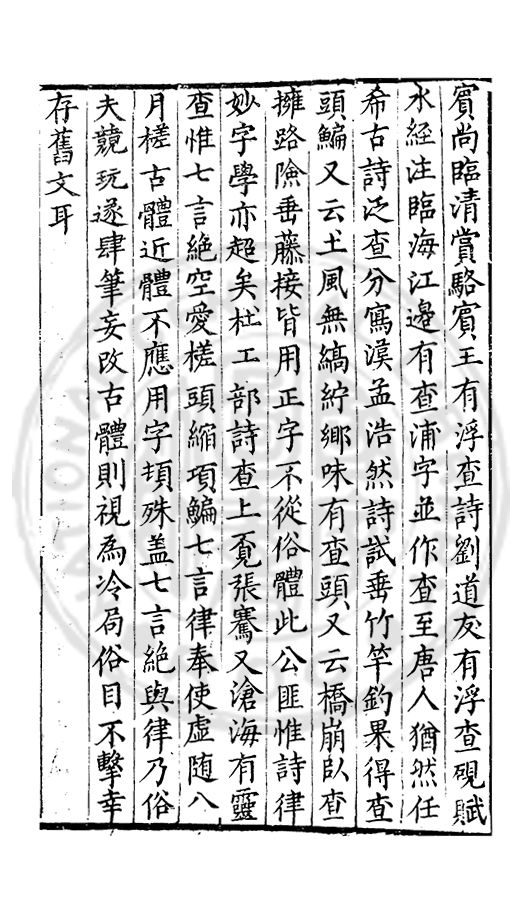 賔尚臨清賞駱賔王有浮查詩劉道友有浮查硯賦
水經注臨海江邊有查浦字並作查至唐人猶然任
希古詩泛查分寫漢孟浩然詩試垂竹竿釣果得查
頭鯿又云土風無縞紵鄉味有查頭又云橋崩臥查
擁路險垂藤接皆用正字不從俗體此公匪惟詩律
妙字學亦超矣杜工部詩查上覔張騫又滄海有靈
查惟七言絶空愛槎頭縮項鯿七言律奉使虛随八
月槎古體近體不應用字頓殊盖七言絶與律乃俗
夫競玩遂肆筆妄改古體則視爲冷局俗目不擊幸
存舊文耳